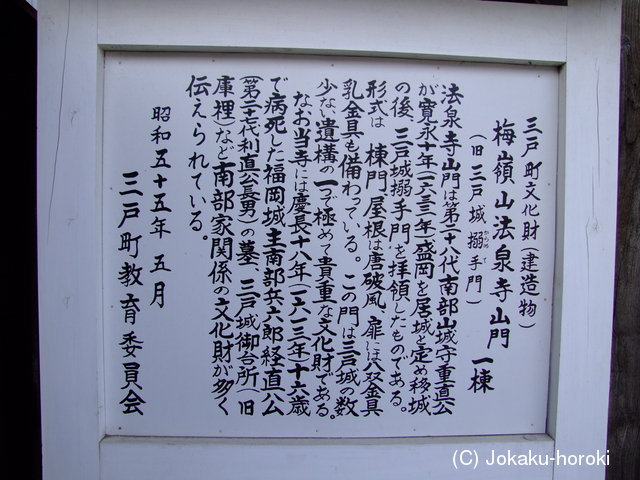 三戸町文化財(建造物)
梅嶺山法泉寺山門 一棟
(旧三戸城搦手門)
からめて
法泉寺山門は第二十八代南部山城守重直公
が寛永十年(一六三三年)盛岡を居城と定め移城
の後、三戸城搦手門を拝領したものである。
形式は 棟門、屋根は唐破風、扉には八双金具
乳金具も備わっている。この門は三戸城の数
少ない遺構の一つで極めて貴重な文化財である。
なお当寺には慶長十八年(一六一三年)十六歳
で病死した福岡城主南部兵六郎経直公
(第二十七代利直公長男)の墓、三戸城御台所(旧
庫裡)など南部家関係の文化財が多く
伝えられている。
昭和五十五年 五月
三戸町教育委員会
(C) Jokaku-horoki